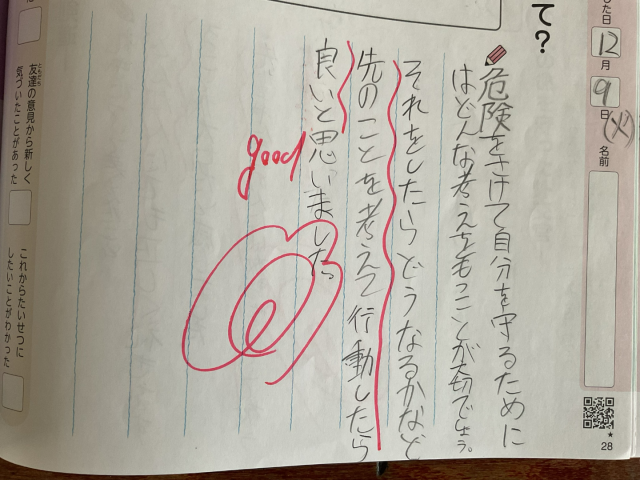 て？
した日
12月
9日(火)
名前
危険をさけて自分を守るために
はどんな考えをもつことが大切でしょう。
それをしたらどうなるかなど
先のことを考えて行動したら
良いと思いました。
good
友達の意見から新しく
気づいたことがあった
これからたいせつに
したいことがわかった
28